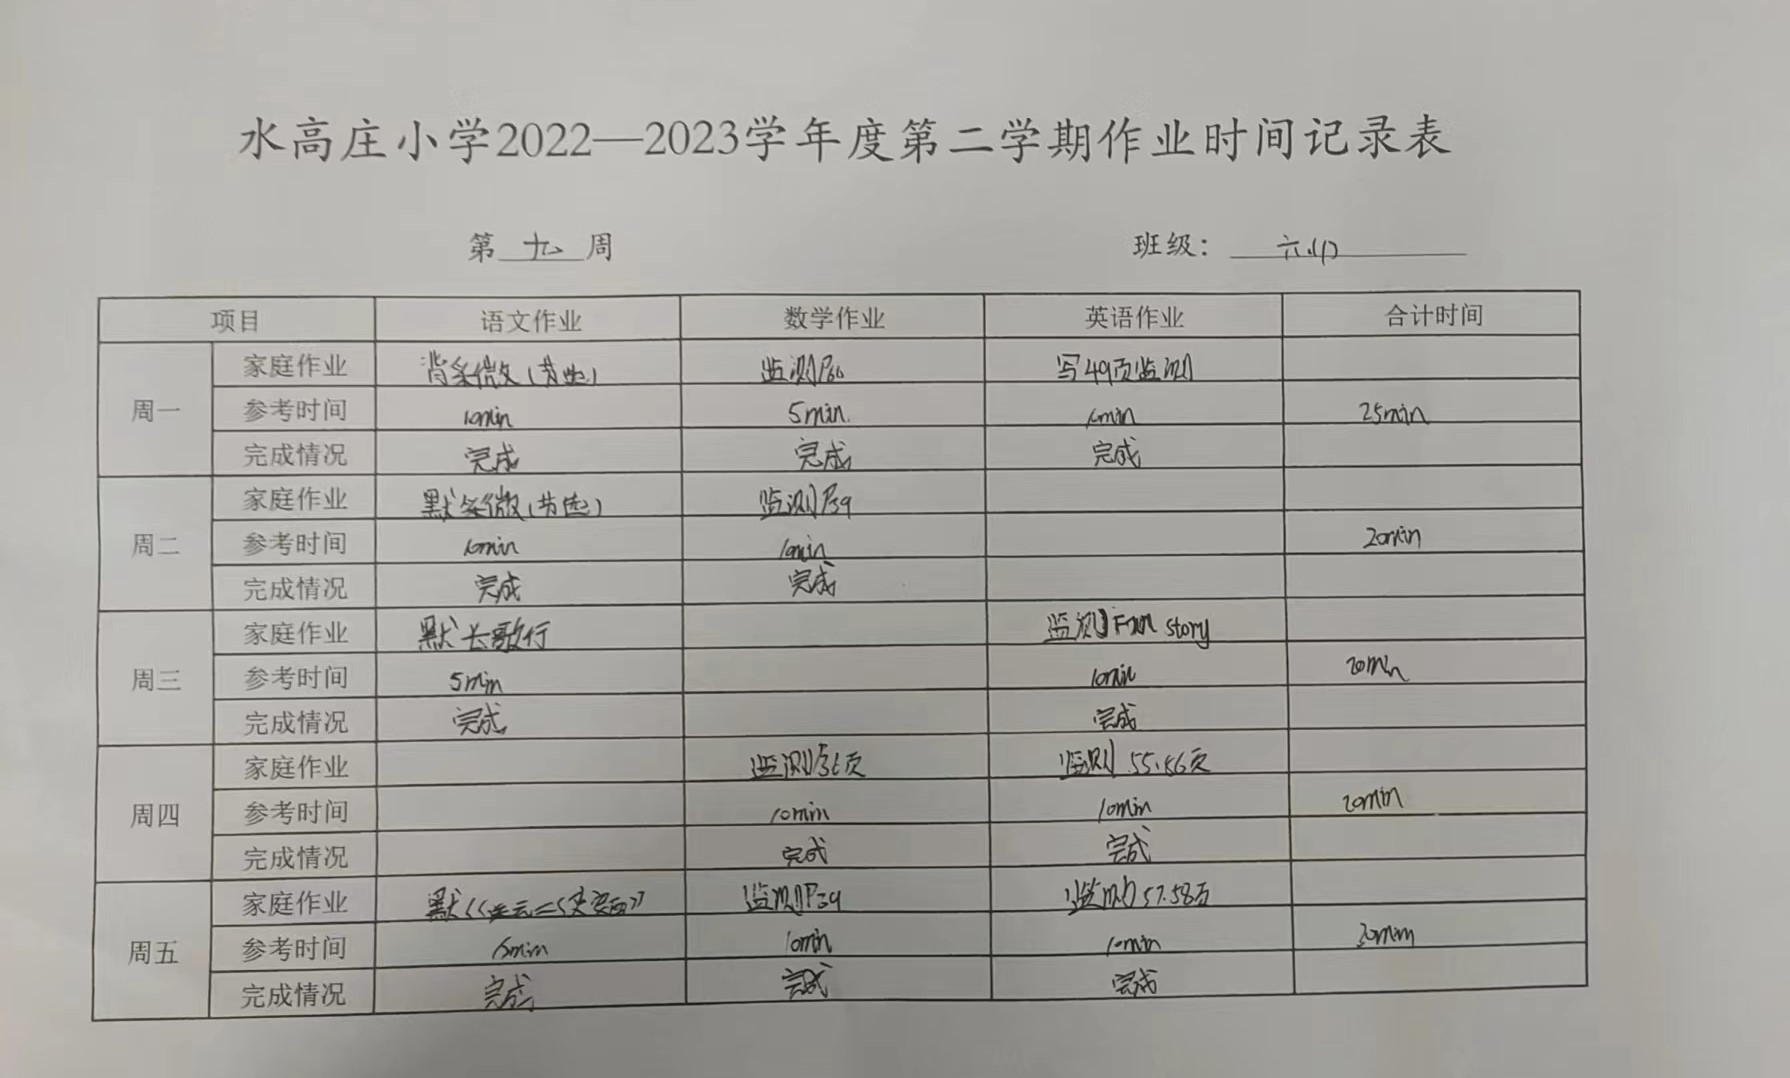 水高庄小学2022—2023学年度第二学期作业时间记录表
第 九 周 班级： 六(1)
项目 语文作业 数学作业 英语作业 合计时间
周一 家庭作业 背采薇(节选) 监测P 写49页监测
参考时间 10min 5min 10min 25min
完成情况 完成 完成 完成
周二 家庭作业 默采薇(节选) 监测P39
参考时间 10min 10min 20min
完成情况 完成 完成
周三 家庭作业 默长歌行 监测 Fun story
参考时间 5min 10min 20min
完成情况 完成 完成
周四 家庭作业 监测36页 监测 55.56页
参考时间 10min 10min 20min
完成情况 完成 完成
周五 家庭作业 默《送元二使安西》 监测P39 监测 57.58页
参考时间 10min 10min 30min
完成情况 完成 完成 完成